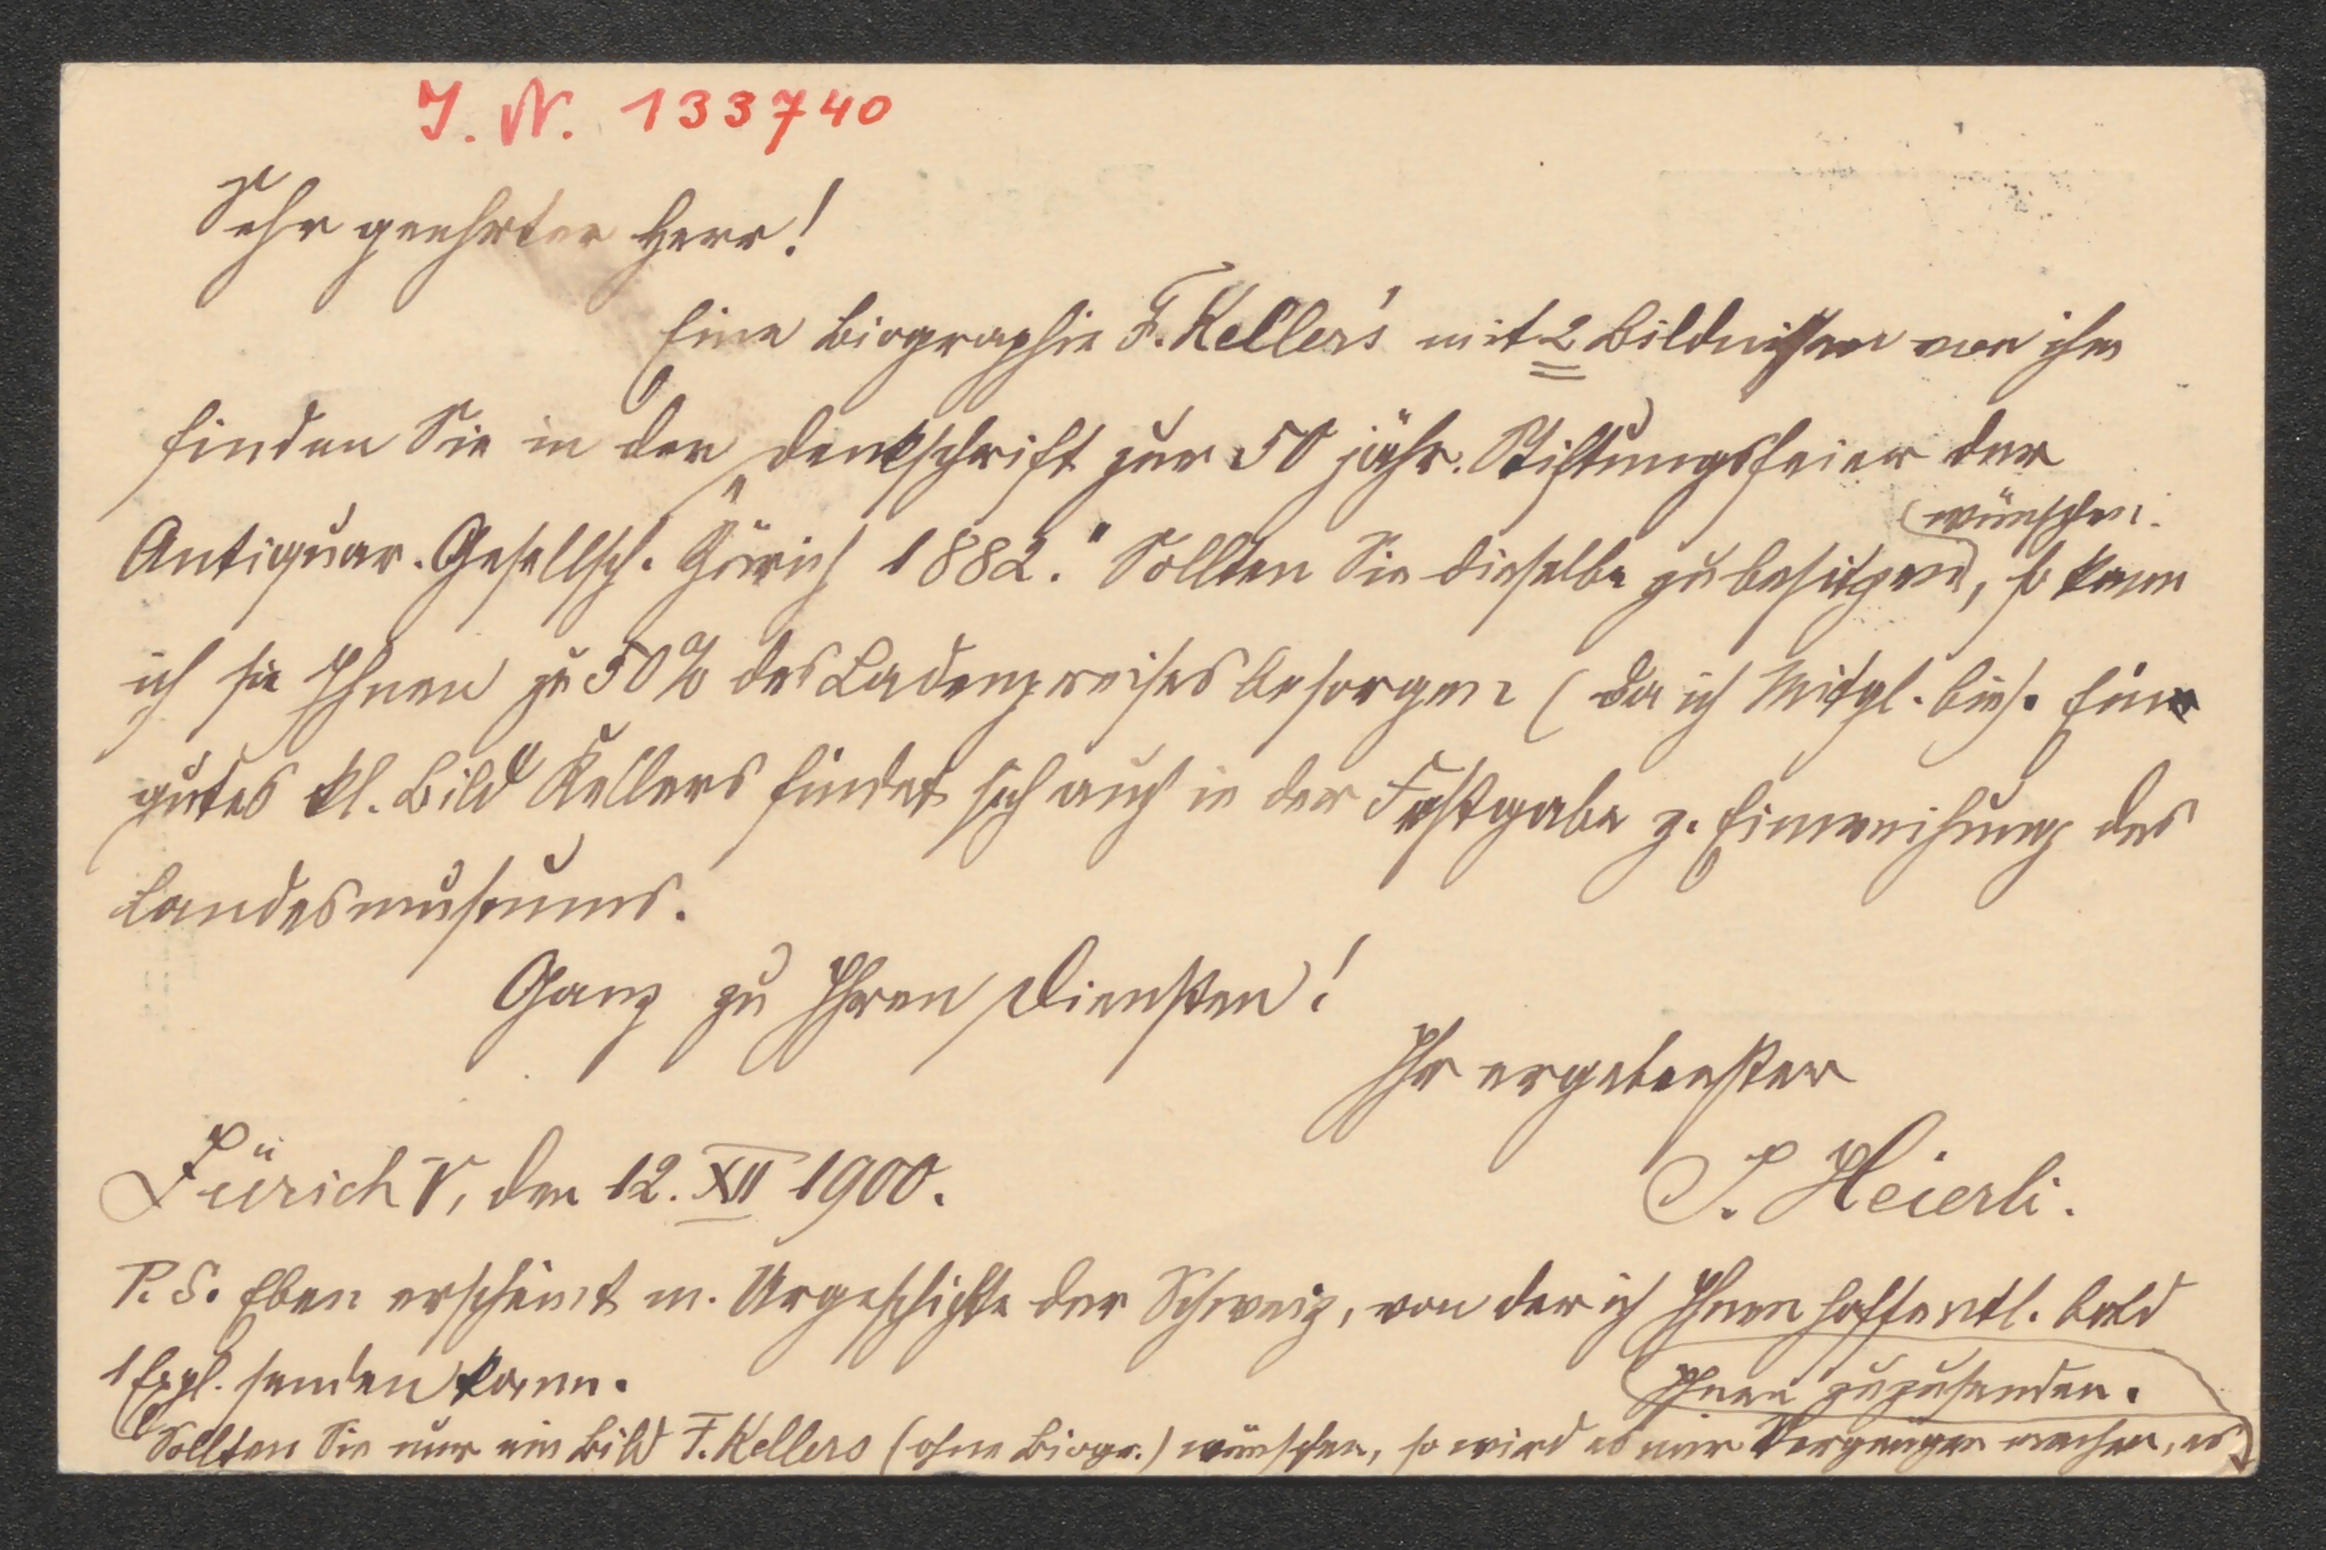 J. N. 133740
Sehr geehrter Herr!
Eine Biographie F. Keller's mit 2 Bildnissen von ihm
finden Sie in der „Denkschrift zur 50 jähr. Stiftungsfeier der
Antiquar. Gesellsch. Zürich 1882." Sollten Sie dieselbe zu besitzen wünschen, so kann
ich sie Ihnen zu 50% des Ladenpreises besorgen (da ich Mitgl. bin). Ein
gutes kl. Bild Kellers findet sich auch in der Festgabe z. Einweihung des
Landesmuseums.
Ganz zu Ihren Diensten!
Ihr ergebenster
Zürich V, den 12. XII 1900.
J. Heierli.
P. S. Eben erscheint m. Urgeschichte der Schweiz, von der ich Ihnen hoffentl. bald
1 Expl. senden kann.
Sollten Sie nur ein Bild F. Kellers (ohne Biogr.) wünschen, so wird es mir Vergnügen machen, es
Ihnen zuzusenden.